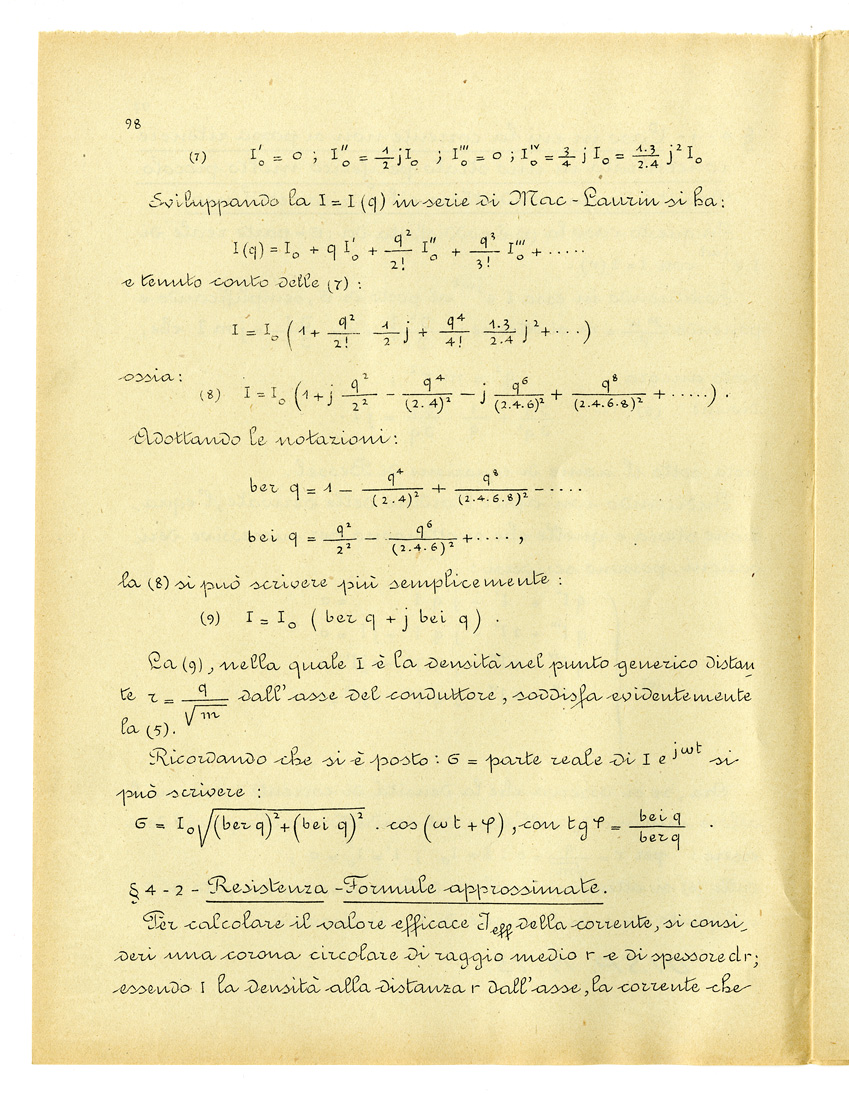 98
(7) I'₀ = 0 ; I''₀ = 1/2 j I₀ ; I'''₀ = 0 ; I₀^IV = 3/4 j I₀ = 1.3/2.4 j² I₀
Sviluppando la I = I (q) in serie di Mac-Laurin si ha:
I(q) = I₀ + q I'₀ + q²/2! I''₀ + q³/3! I'''₀ + .....
e tenuto conto delle (7) :
I = I₀ (1 + q²/2! 1/2 j + q⁴/4! 1.3/2.4 j² + ...)
ossia :
(8) I = I₀ (1 + j q²/2² - q⁴/(2.4)² - j q⁶/(2.4.6)² + q⁸/(2.4.6.8)² + .....) .
Adottando le notazioni :
ber q = 1 - q⁴/(2.4)² + q⁸/(2.4.6.8)² - ....
bei q = q²/2² - q⁶/(2.4.6)² + .... ,
la (8) si può scrivere più semplicemente :
(9) I = I₀ (ber q + j bei q) .
La (9), nella quale I è la densità nel punto generico distan
te r = q/√m dall'asse del conduttore, soddisfa evidentemente
la (5).
Ricordando che si è posto : σ = parte reale di I e^jωt si
può scrivere :
σ = I₀ √((ber q)² + (bei q)²) . cos (ωt + φ), con tg φ = bei q/ber q .
§ 4-2 - Resistenza - Formule approssimate.
Per calcolare il valore efficace I_eff della corrente, si consi_
deri una corona circolare di raggio medio r e di spessore dr;
essendo I la densità alla distanza r dall'asse, la corrente che